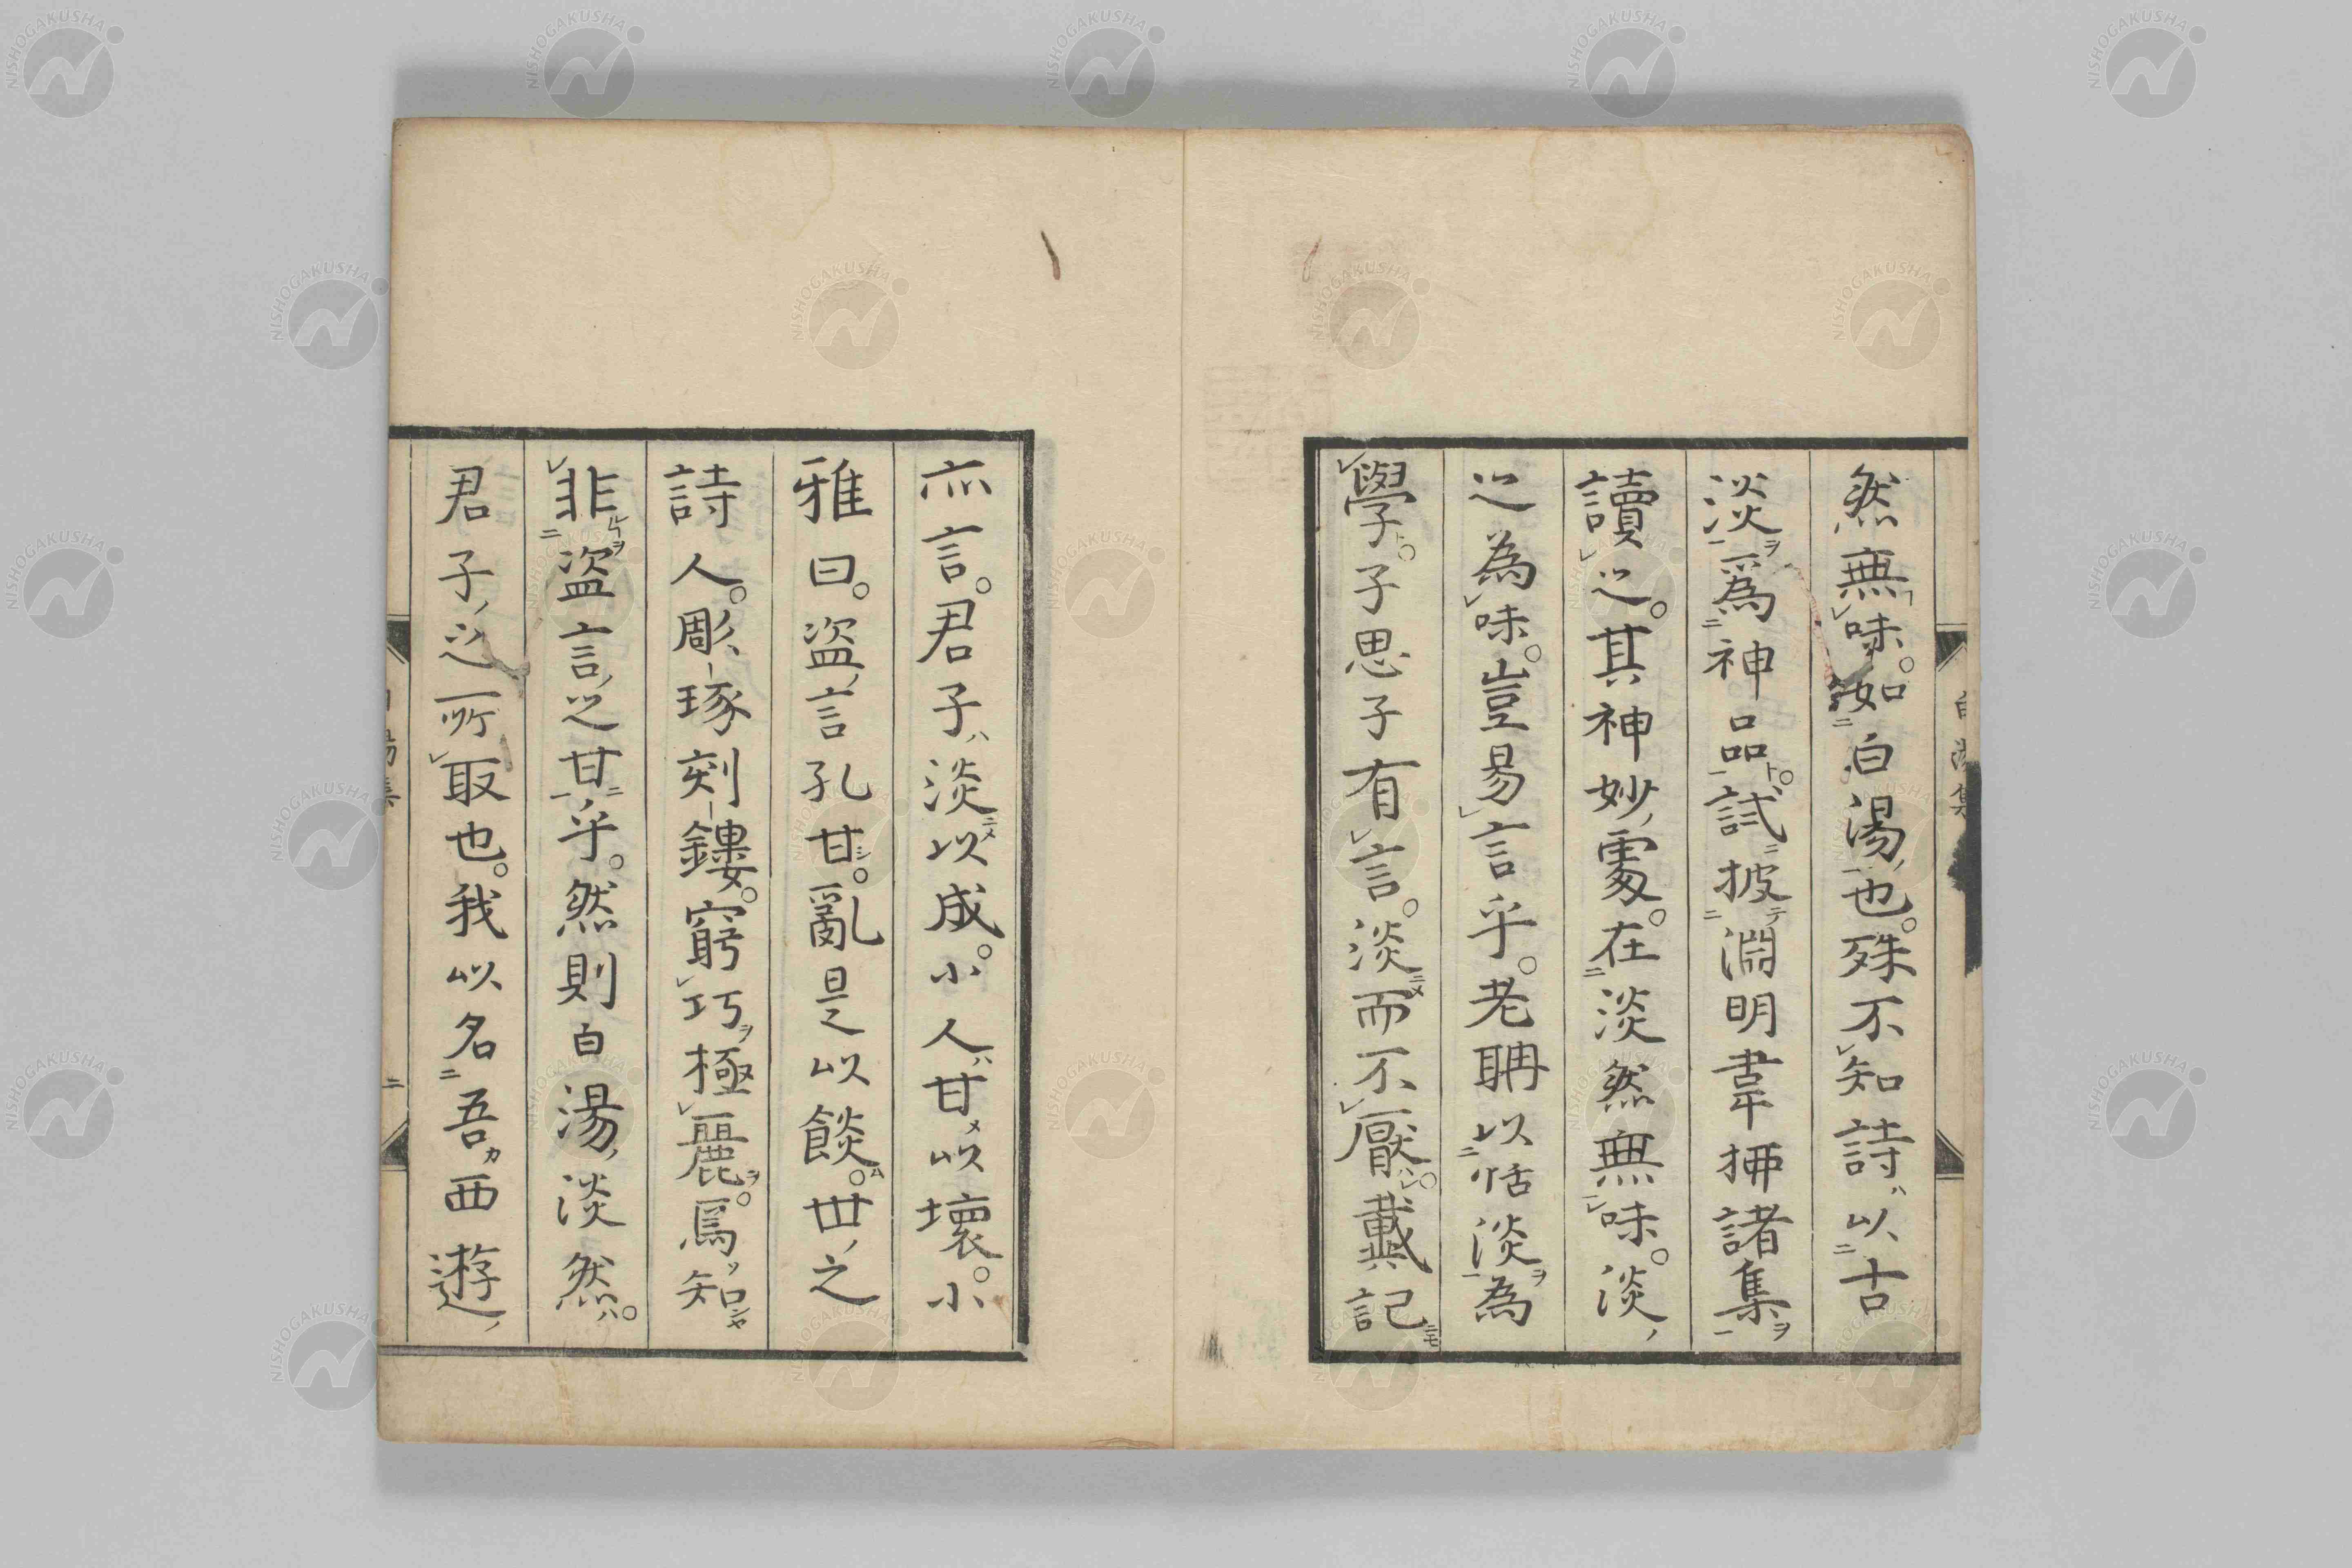 然無味。如白湯也。殊不知詩以古
淡爲神品。試披淵明韋柳諸集
讀之。其神妙處。在淡然無味。淡
之為味。豈易言乎。老聃以恬淡為
學。子思子有言。淡而不厭。戴記
亦言。君子淡以成。小人甘以壞。小
雅曰。盗言孔甘。亂是以餤。世之
詩人。彫琢刻鏤。窮巧極麗。焉知
非盗言之甘乎。然則白湯淡然。
君子之所取也。我以名吾西遊